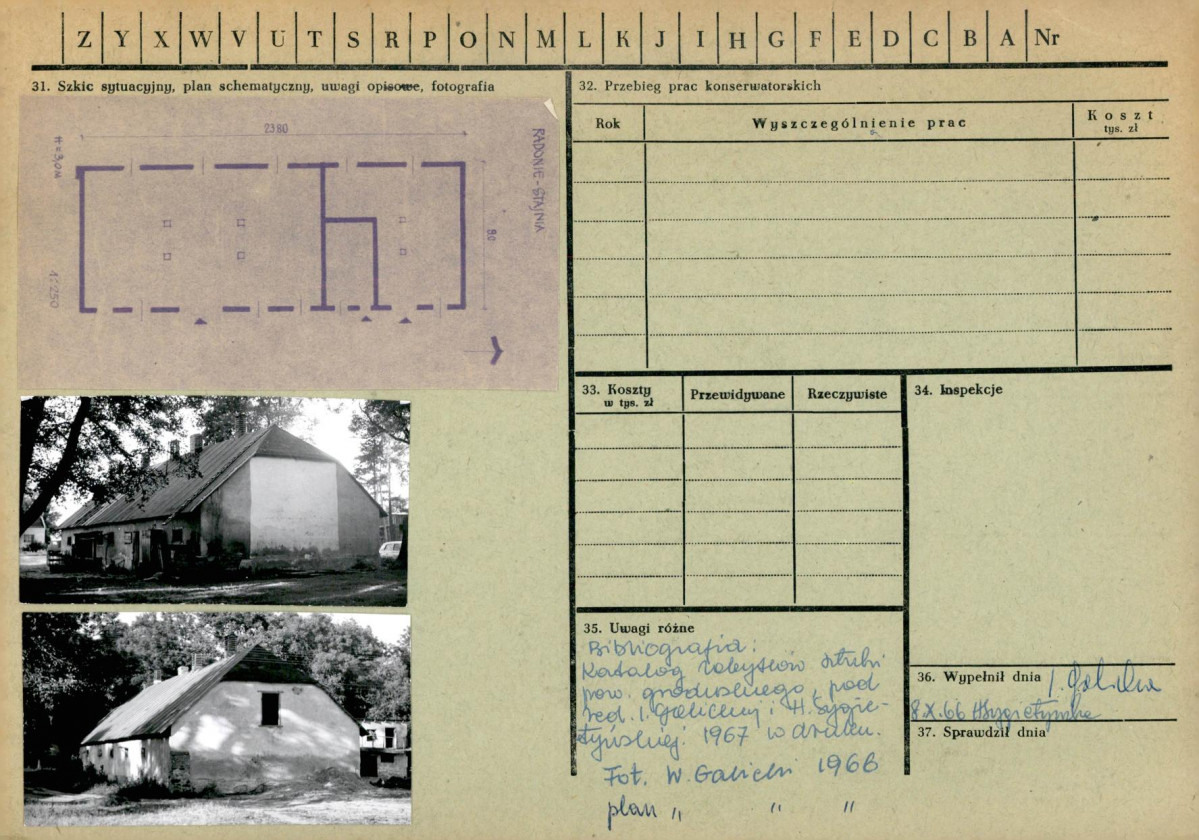 Z Y X W V U T S R P O N M L K J I H G F E D C B A Nr
31. Szkic sytuacyjny, plan schematyczny, uwagi opisowe, fotografia
2380
H=3,0M
RADONIE-STAJNIA
80
1:250
32. Przebieg prac konserwatorskich
Rok
Wyszczególnienie prac
Koszt
tys. zł
33. Koszty
w tys. zł
Przewidywane
Rzeczywiste
34. Inspekcje
35. Uwagi różne
Bibliografia:
Katalog zabytków sztuki
pow. grodziskiego, pod
red. I. Galickiej i H. Sygie-
tyńskiej. 1967 w druku.
Fot. W. Galicki 1966
plan " " "
36. Wypełnił dnia I. Galicka
8 X.66 HSygietyńska
37. Sprawdził dnia